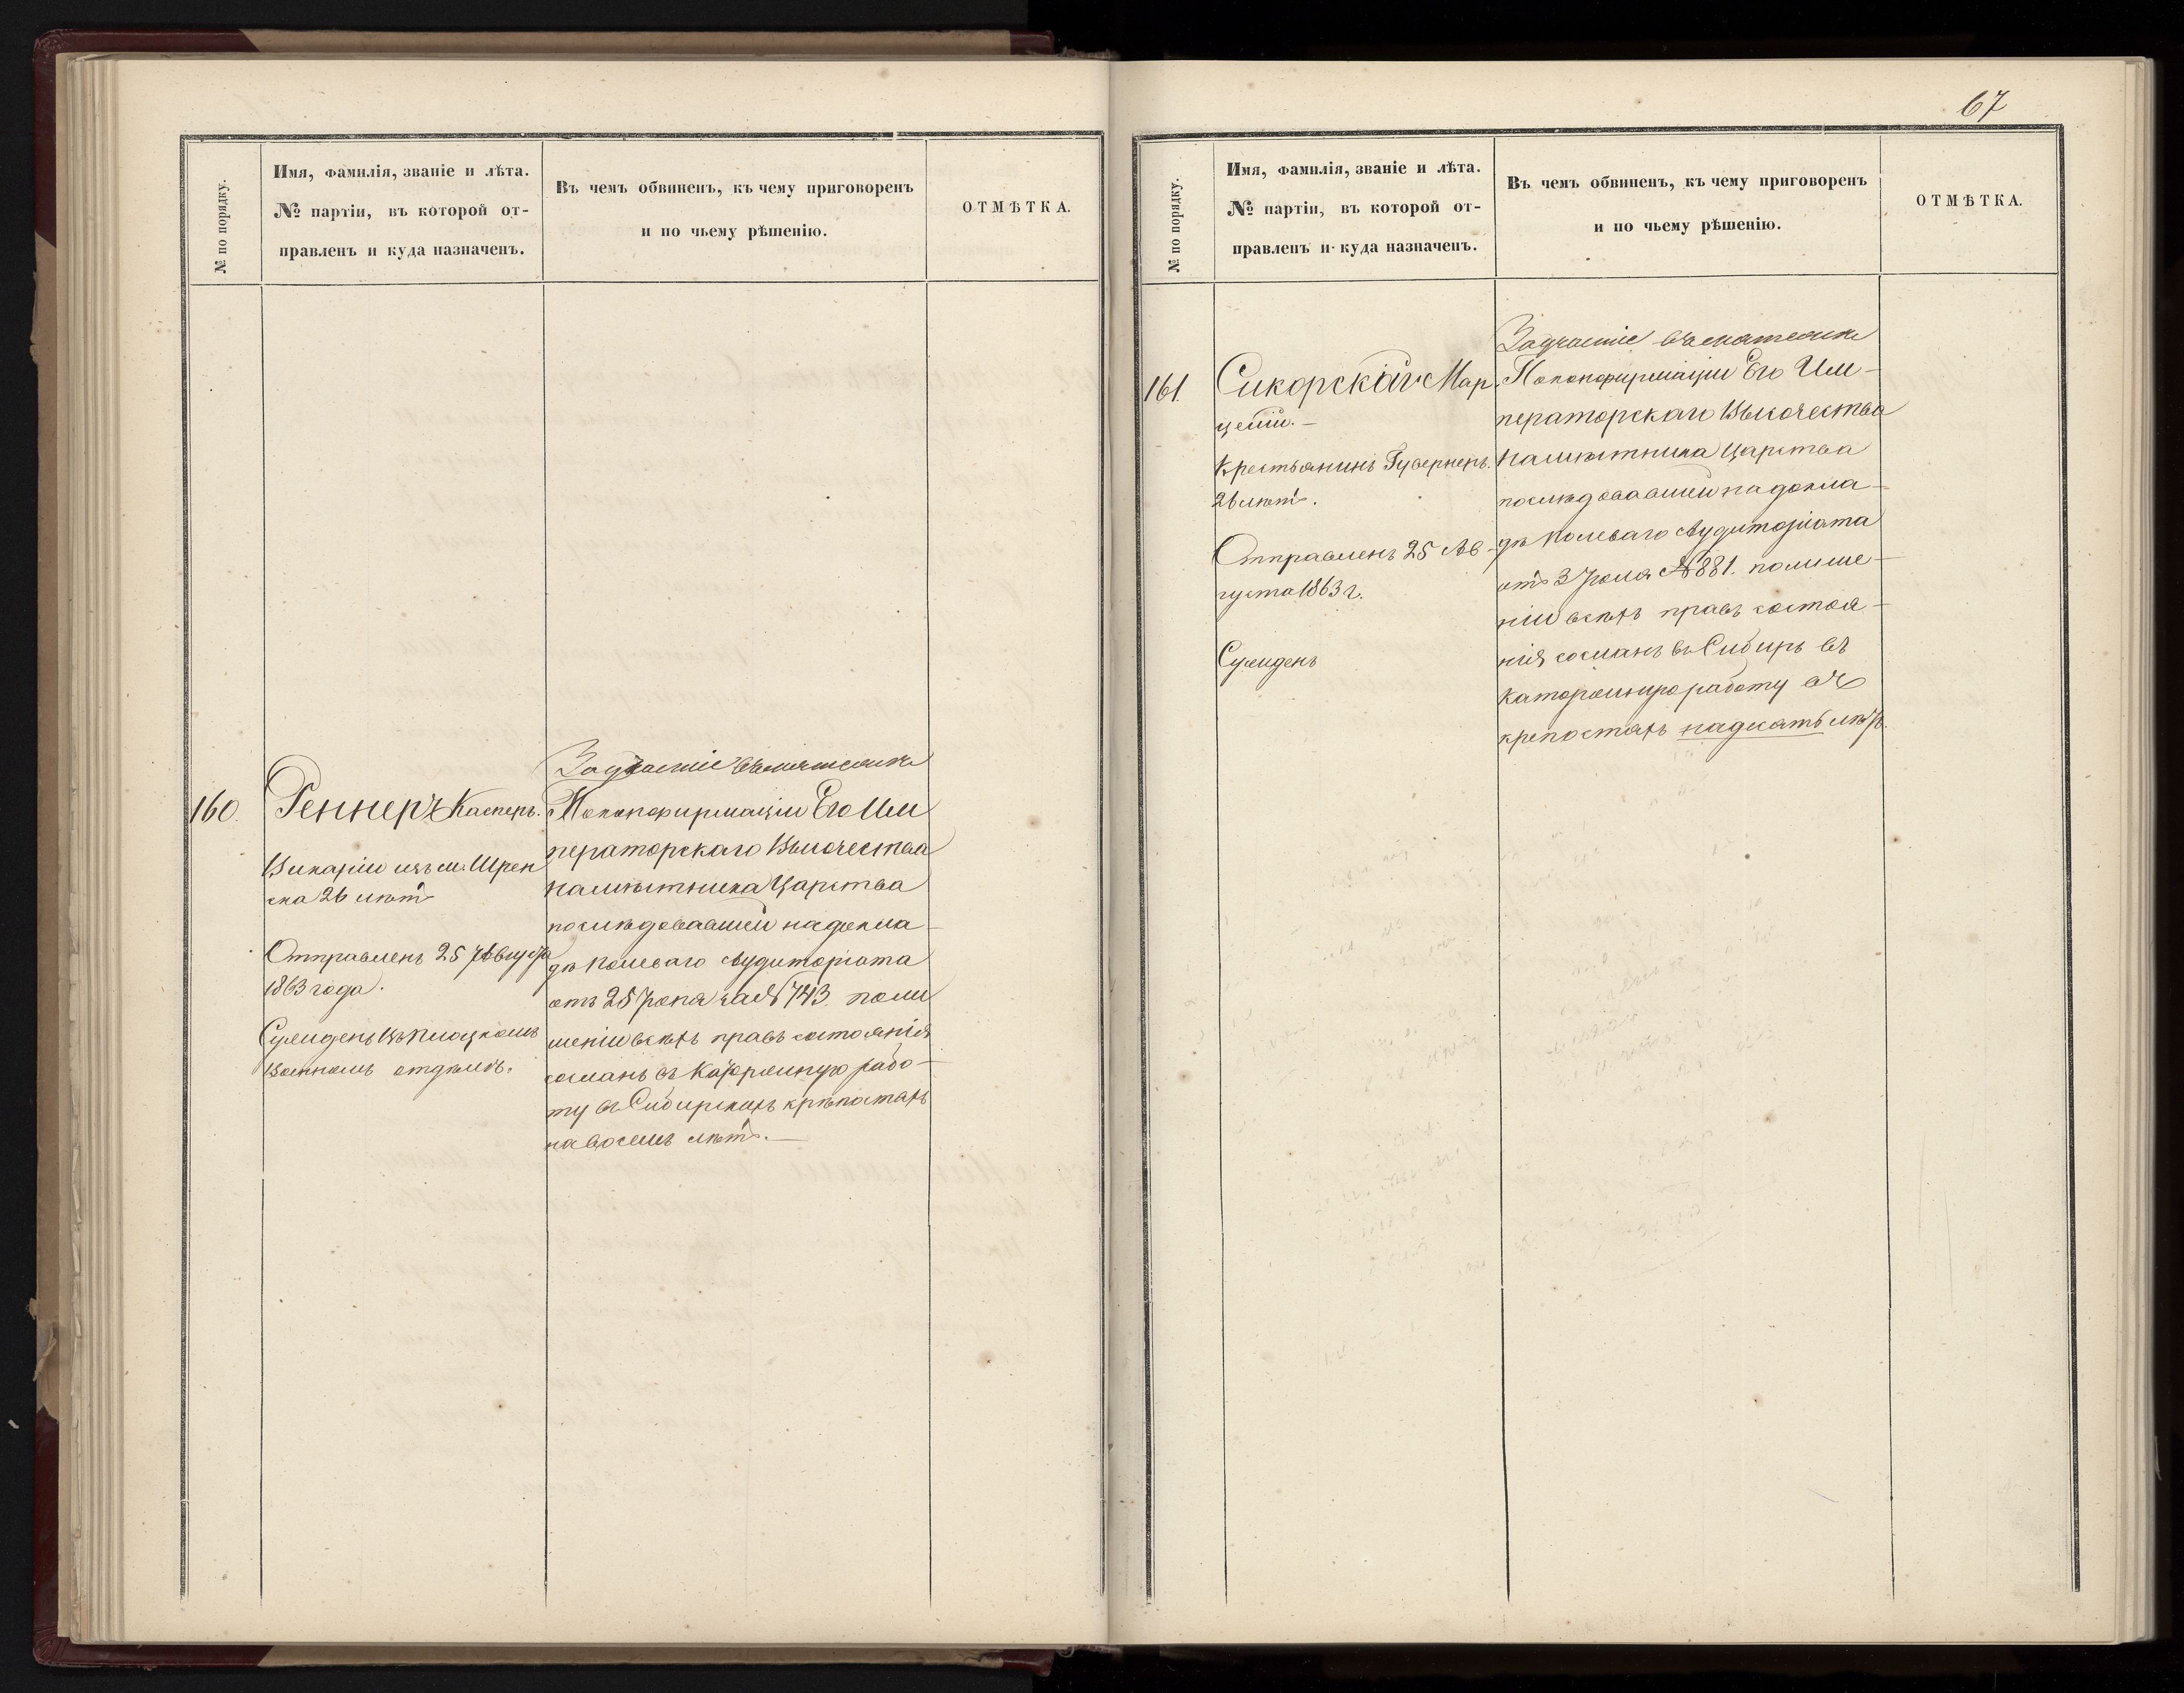 № по порядку.
Имя, фамилія, званіе и лѣта.
№ партіи, въ которой от-
правленъ и куда назначенъ.
Въ чемъ обвиненъ, къ чему приговоренъ
и по чьему рѣшенію.
ОТМѢТКА.
160.
Реннеръ Касперъ.
Викарій изъ м. Шрен
ска 26 лѣтъ
Отправленъ 25 Августа
1863 года.
Сужденъ въ Плоцкомъ
Военномъ отдѣлѣ.
За участіе въ мятежѣ
По конфирмаціи Его Им
ператорскаго Высочества
намѣстника Царства
послѣдовавшей на докла-
дѣ полеваго Аудиторіата
отъ 25 Іюня за № 743. по ли
шеніи всѣхъ правъ состоянія
сосланъ въ Каторжную рабо-
ту въ Сибирскихъ крѣпостяхъ
на восемь лѣтъ. —
67
№ по порядку.
Имя, фамилія, званіе и лѣта.
№ партіи, въ которой от-
правленъ и куда назначенъ.
Въ чемъ обвиненъ, къ чему приговоренъ
и по чьему рѣшенію.
ОТМѢТКА.
161.
Сикорскій Мар
целій. —
Крестьянинъ Губернен.
26 лѣтъ.
Отправленъ 25 Ав-
густа 1863 г.
Сужденъ
За участіе въ мятежѣ
По конфирмаціи Его Им-
ператорскаго Высочества
намѣстника Царства
послѣдовавшей на докла-
дѣ полеваго Аудиторіата
отъ 3 Іюля № 881. по лише-
ніи всѣхъ правъ состоя-
нія сосланъ въ Сибирь въ
каторжную работу въ
крепостяхъ на десять лѣтъ.